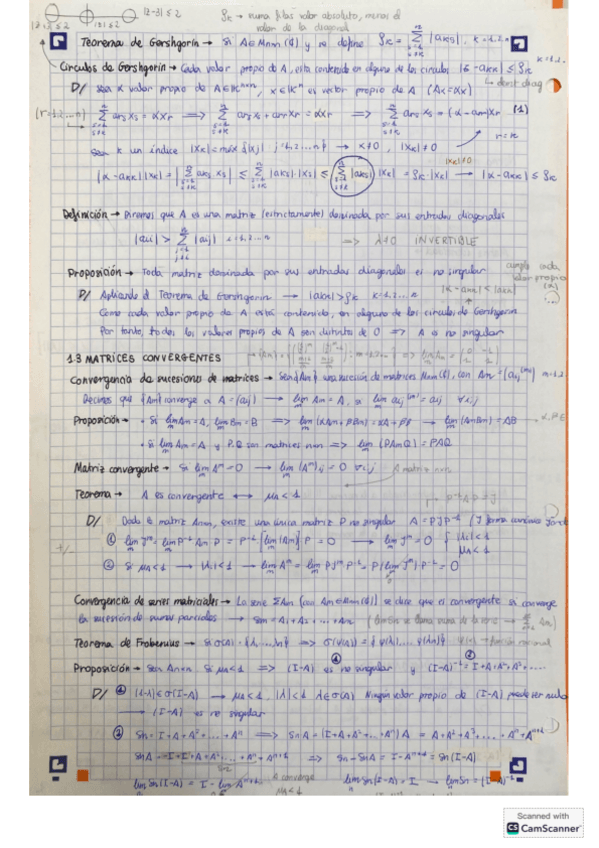 |z-3| ≤ 2
ρk → suma filas valor absoluto, menos el
valor de la diagonal
Teorema de Gershgorin → Si A∈Mnxn (¢) y se define ρk = Σ |aks|, k=1,2...n
Círculos de Gershgorin → Cada valor propio de A, está contenido en alguno de los círculos |z-akk| ≤ ρk
D/ Sea α valor propio de A∈K^nxn, x∈K^n es vector propio de A (Ax=αx)
Σ ars xs = αxr ⟹ Σ ars xs + arr xr = αxr ⟹ Σ ars xs = (α-arr)xr (1)
r=k
Sea k un índice |xk| = máx {|xj| j=1,2...n} → x≠0, |xk|≠0
|α-akk||xk| = |Σ aks xs| ≤ Σ |aks|·|xs| ≤ Σ |aks| |xk| = ρk·|xk| → |α-akk| ≤ ρk
Definición → Diremos que A es una matriz (estrictamente) dominada por sus entradas diagonales
|aii| > Σ |aij| i=1,2...n ⟹ λ≠0 INVERTIBLE
Proposición → Toda matriz dominada por sus entradas diagonales es no singular
D/ Aplicando el Teorema de Gershgorin → |akk| > ρk k=1,2...n
Como cada valor propio de A está contenido, en alguno de los círculos de Gershgorin
Por tanto, todos los valores propios de A son distinto de 0 ⟹ A es no singular
1.3 MATRICES CONVERGENTES
Convergencia de sucesiones de matrices → Sea {Am} una sucesión de matrices Mnxn(¢), con Am = (aij^(m)) m=1,2..
Decimos que {Am} converge a A = (aij) → lim Am = A, si lim aij^(m) = aij ∀i,j
Proposición → • Si lim Am = A, lim Bm = B ⟹ lim (αAm+βBm) = αA+βB → lim (AmBm) = AB
• Si lim Am = A y P,Q son matrices nxn ⟹ lim (PAmQ) = PAQ
Matriz convergente → Si lim A^m = 0 → lim (A^m)ij = 0 ∀i,j A matriz nxn
Teorema → A es convergente ⟷ μA < 1
D/ Dada la matriz Anxn, existe una única matriz P no singular A = PJP^-1
① lim J^m = lim P^-1 A^m P = P^-1 [lim (A^m)] P = 0 → lim J^m = 0 { |λi| < 1 μA < 1
② Si μA<1 → |λi|<1 → lim A^m = lim PJ^mP^-1 = P(lim J^m)P^-1 = 0
Convergencia de series matriciales → La serie ΣAm (con Am∈Mnxn(¢)) se dice que es convergente si converge
la sucesión de sumas parciales → Sm = A1 + A2 + ... + Am
Teorema de Frobenius → Si σ(A) = {λ1,...,λn} ⟹ σ(ψ(A)) = {ψ(λ1),...,ψ(λn)}
Proposición → Sea Anxn. Si μA<1 ⟹ (I-A) es no singular y (I-A)^-1 = I+A+A²+A³+....
D/ ① (1-λ)∈σ(I-A) → μA<1, |λ|<1 λ∈σ(A) Ningún valor propio de (I-A) puede ser nulo
→ (I-A) es no singular
② Sn = I+A+A²+...+A^n ⟹ SnA = (I+A+A²+...+A^n)A = A+A²+A³+...+A^n+A^n+1
SnA = -I+I+A+A²+...+A^n+A^n+1 ⟹ Sn-SnA = I-A^n+1 = Sn(I-A)
lim Sn(I-A) = I - lim A^n+1 A converge μA<1 lim Sn(I-A) = I → lim Sn = (I-A)^-1
Scanned with
CS CamScanner